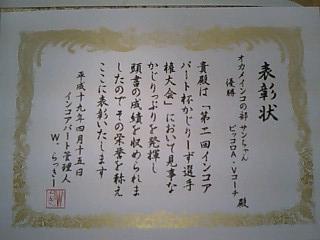 表彰状
オカメインコの部 サンちゃん
優勝 ピッコロA・Vコーチ 殿
貴殿は「第二回インコア
パート杯かじりーず選手
権大会」において見事な
かじりっぷりを発揮し
頭書の成績を収められま
したので その栄誉を称え
ここに表彰いたします
平成十九年四月十五日
インコアパート管理人
W・らっきー